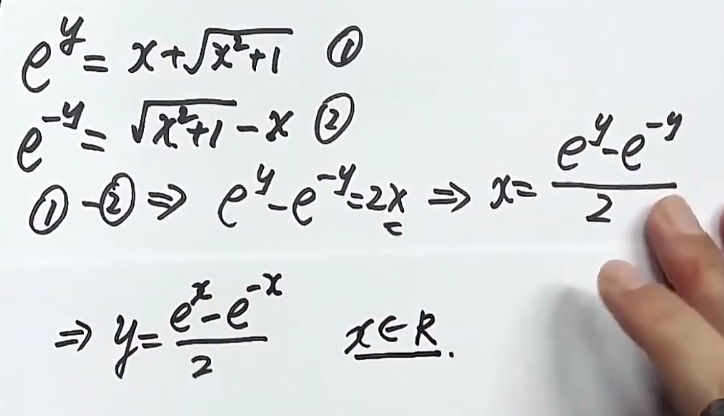 e^y = x + √(x²+1) ①
e^{-y} = √(x²+1) - x ②
① - ② ⇒ e^y - e^{-y} = 2x ⇒ x = (e^y - e^{-y})/2
⇒ y = (e^x - e^{-x})/2 x∈R.